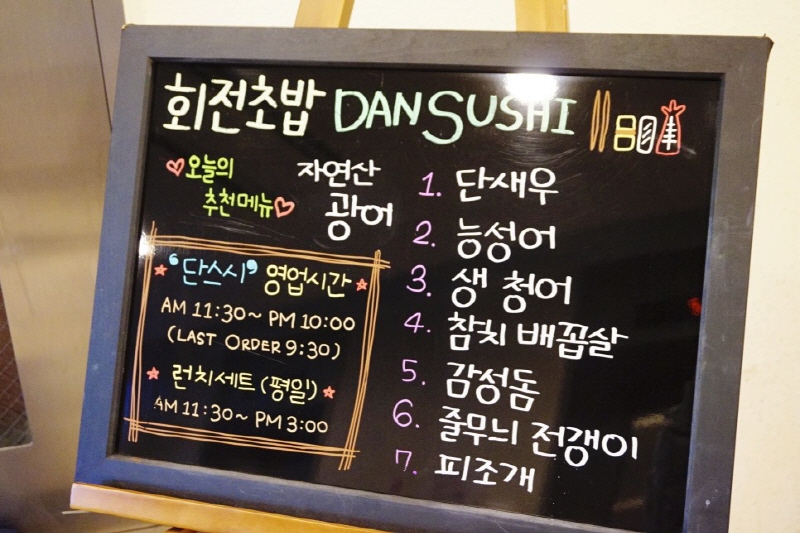 회전초밥 DAN SUSHI
♥오늘의
추천메뉴♥
자연산
광어
★'단스시' 영업시간★
AM 11:30~ PM 10:00
(LAST ORDER 9:30)
★ 런치세트 (평일) ★
AM 11:30~ PM 3:00
1. 단새우
2. 능성어
3. 생 청어
4. 참치 배꼽살
5. 감성돔
6. 줄무늬 전갱이
7. 피조개